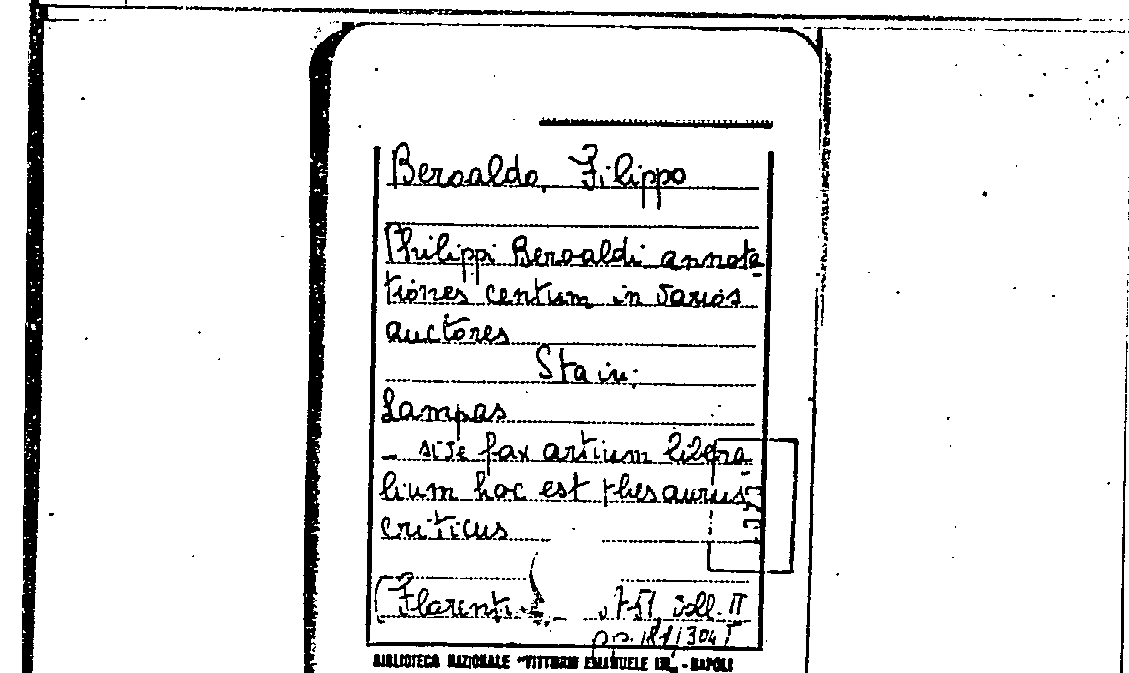 Beroaldo, Filippo
Philippi Beroaldi annota-
tiones centum in varios
auctores
Sta in:
Lampas
- sive fax artium libera-
lium hoc est thesaurus
criticus
(Florenti
vol. II
pp. 181/304
BIBLIOTECA NAZIONALE "VITTORIO EMANUELE III" - NAPOLI